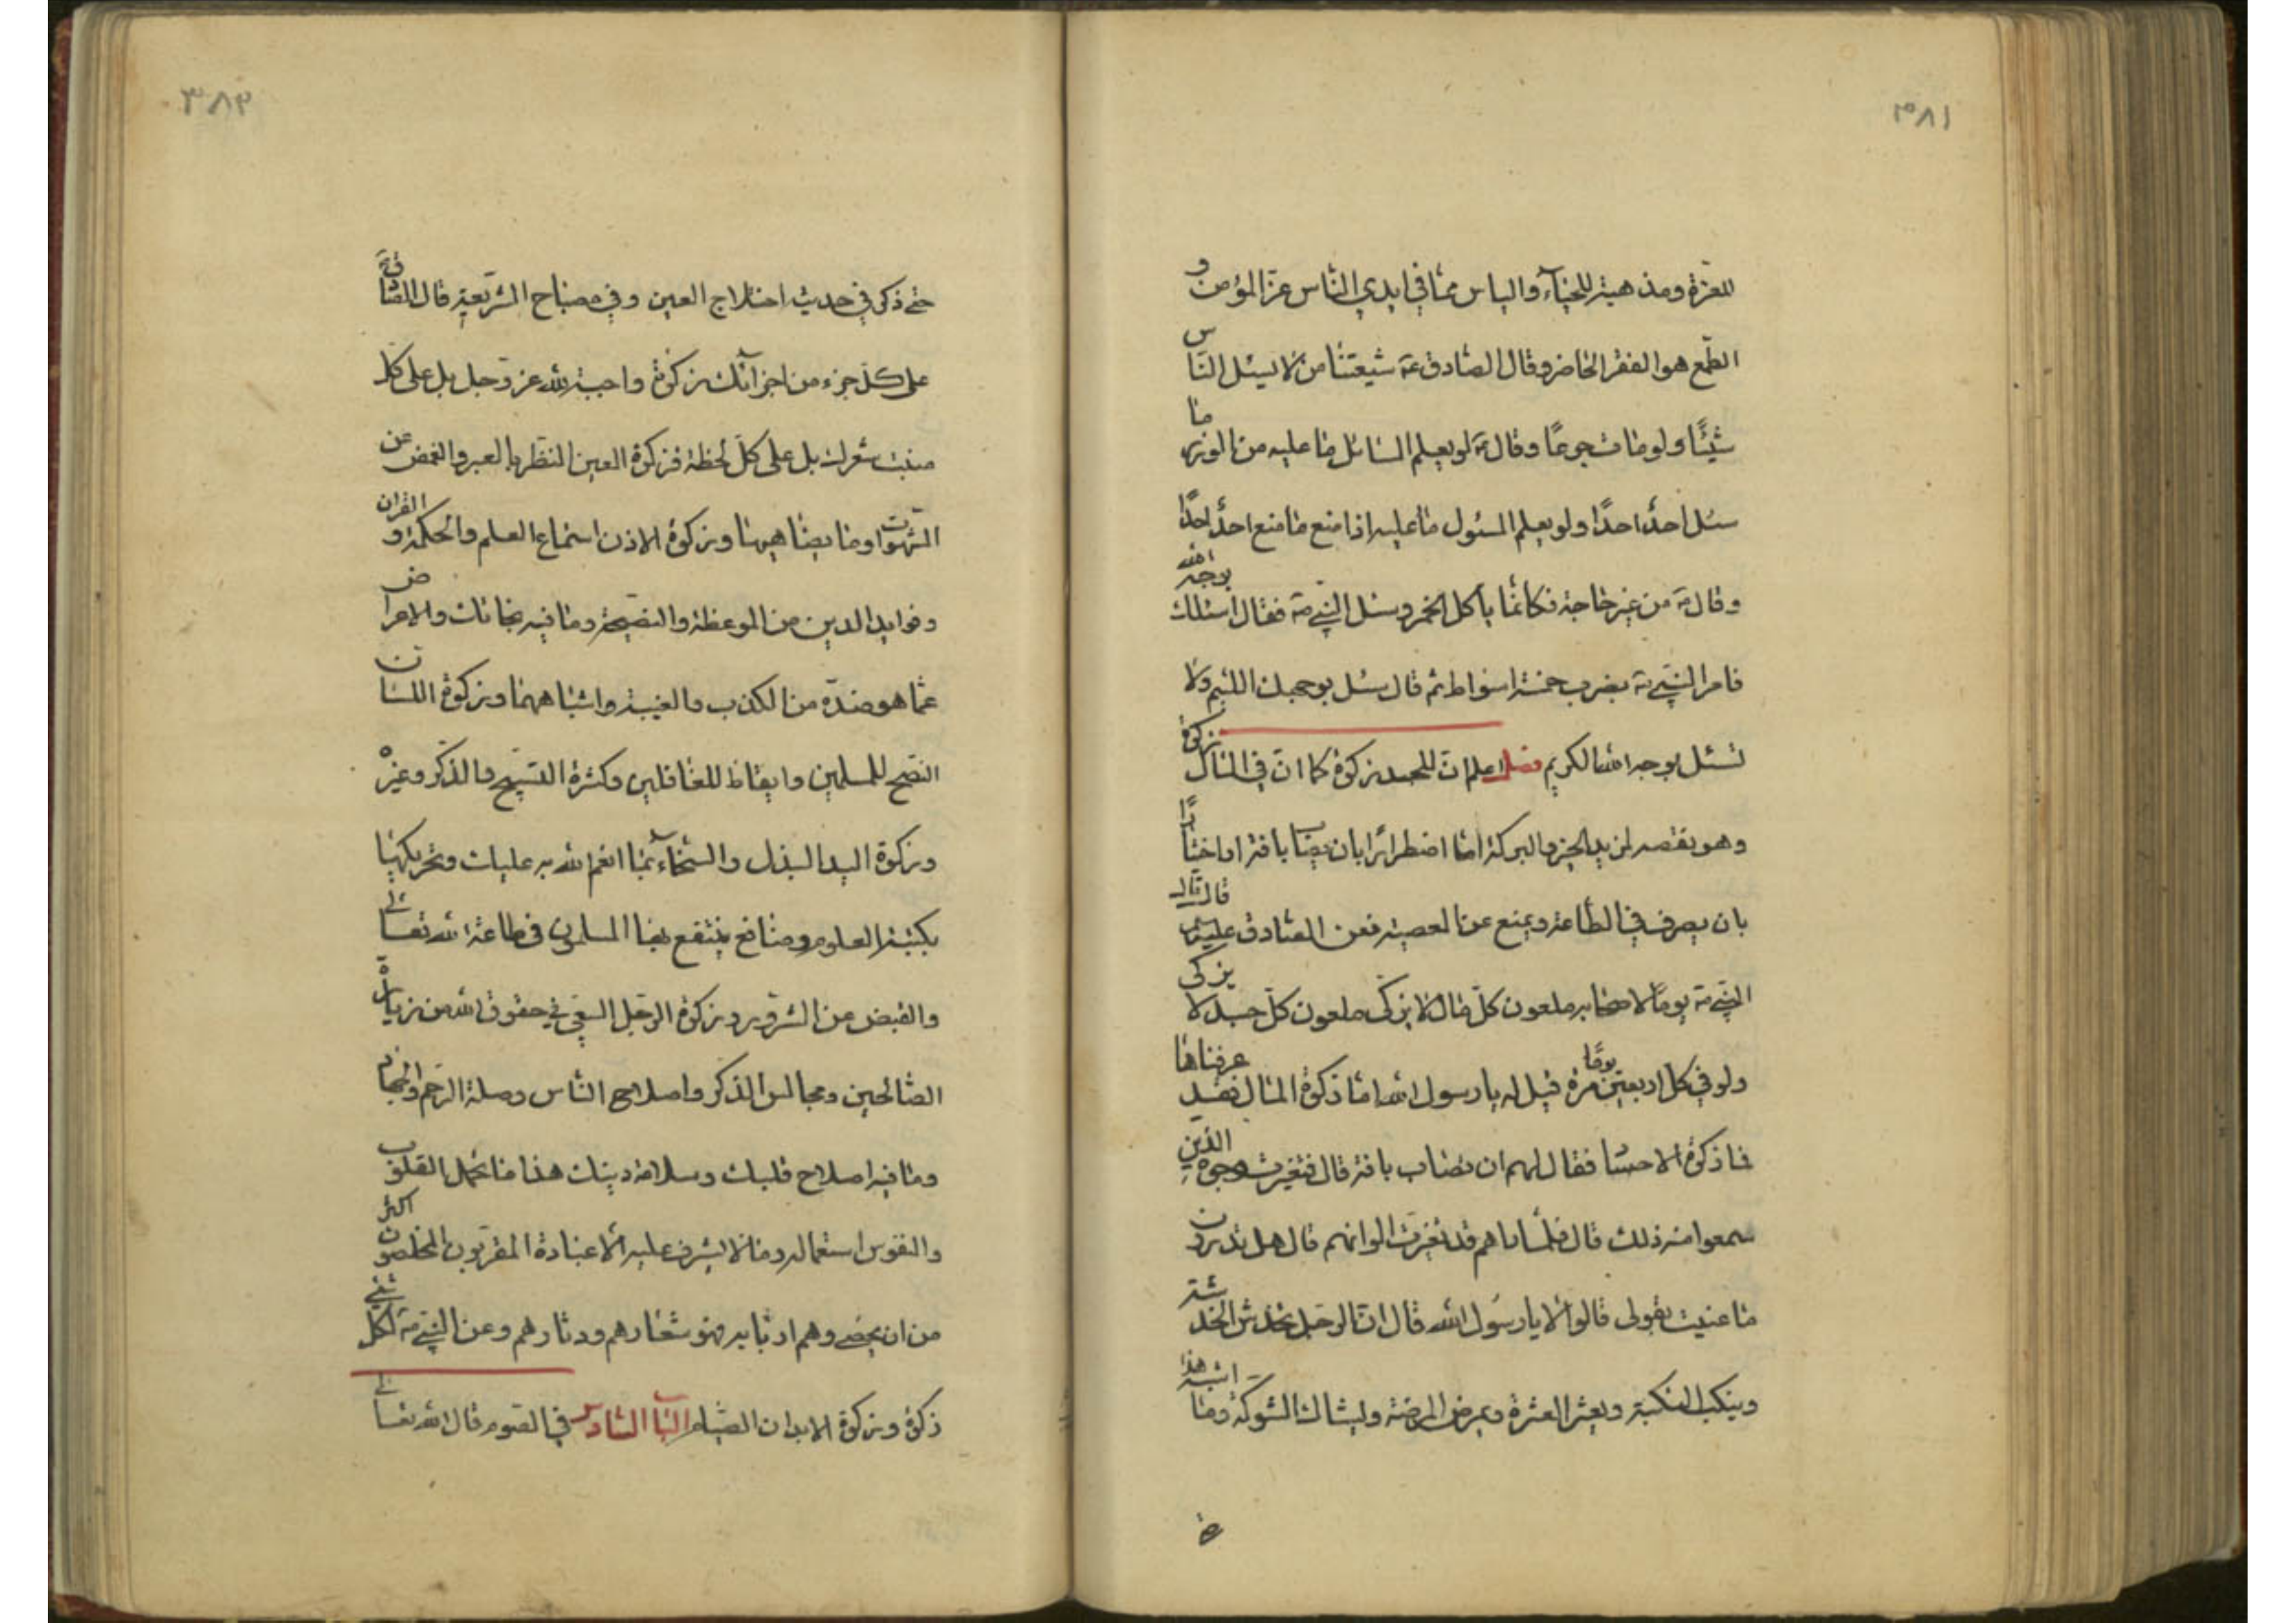 ٣٨١
للعزة ومذهبة للحياء والياس مما في ايدي الناس عز المؤمن و
الطمع هو الفقر الحاضر وقال الصادق ع شيعتنا من لا يسئل الناس
شيئًا ولو مات جوعًا وقال ع لو يعلم السائل ما عليه من الوزر ما
سئل احدٌ احدًا ولو يعلم المسئول ما عليه اذا منع ما منع احدٌ احدًا
وقال ع من غير حاجة فكانما يأكل الخمر وسئل النبي ص فقال اسئلك بوجه الله
فامر النبي ص بضرب خمسة اسواط ثم قال سئل بوجهك اللئيم ولا
تسئل بوجه الله الكريم فصل اعلم ان للجسد زكوة كما ان في المال زكوة
وهو نقصه لمزيد الخير والبركة اما اضطرارًا بان يصاب بافة او اختيارًا
بان يصرف في الطاعة ويمنع عن المعصية فعن الصادق ع قال قال
النبي ص يومًا لاصحابه ملعون كل مال لا يزكى ملعون كل جسد لا يزكى
ولو في كل اربعين يومًا مرة قيل له يا رسول الله اما زكوة المال فقد عرفناها
فما زكوة الاجساد فقال لهم ان تصاب بافة قال فتغيرت وجوه الذين
سمعوا منه ذلك قال فلما راهم قد تغيرت الوانهم قال هل تدرون
ما عنيت بقولى قالوا لا يا رسول الله قال ان الرجل يخدش الخدشة
وينكب النكبة ويعثر العثرة ويمرض المرضة ويشاك الشوكة وما اشبه هذا
٣٨٢
حتى ذكر في حديث اختلاج العين وفي مصباح الشريعة قال الصادق ع
على كل جزء من اجزائك زكوة واجبة لله عز وجل بل على كل
منبت شعرك بل على كل لحظة فزكوة العين النظر بالعبر والغمض عن
الشهوات وما يضاهيها وزكوة الاذن استماع العلم والحكمة والقران
وفوايد الدين من الموعظة والنصيحة وما فيه نجاتك والاعراض
عما هو ضده من الكذب والغيبة واشباههما وزكوة اللسان
النصح للمسلمين وايقاظ للغافلين وكثرة التسبيح والذكر وغيره
وزكوة اليد البذل والسخاء بما انعم الله به عليك وتحريكها
بكتبة العلوم ومنافع ينتفع بها المسلمون في طاعة الله تعالى
والقبض عن الشرور وزكوة الرجل السعي في حقوق الله من زيارة
الصالحين ومجالس الذكر واصلاح الناس وصلة الرحم والجهاد
وما فيه اصلاح قلبك وسلامة دينك هذا ما تحمل القلوب
والنفوس استعماله وما لا يشرف عليه الا عبادة المقربون المخلصون اكثر
من ان يحصى وهم اربابه وهو شعارهم ودثارهم وعن النبي ص لكل شئ
زكوة وزكوة الابدان الصيام الباب السادس في الصوم قال الله تعالى